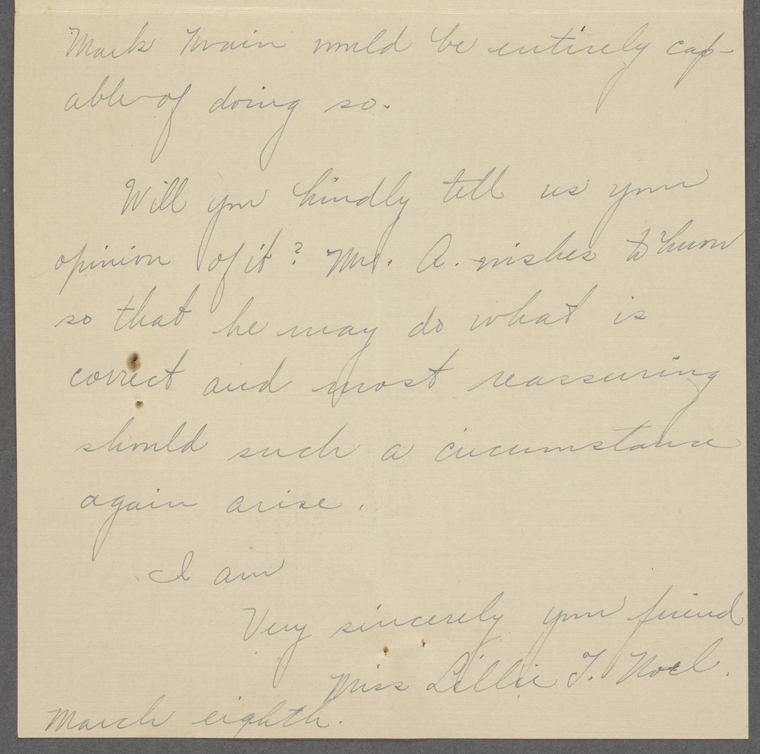 Mark Twain would be entirely cap-
able of doing so.
Will you kindly tell us your
opinion of it? Mr. A. wishes to know
so that he may do what is
correct and most reassuring
should such a circumstance
again arise.
I am
Very sincerely your friend
Miss Lillie T. Noel.
March eighth.